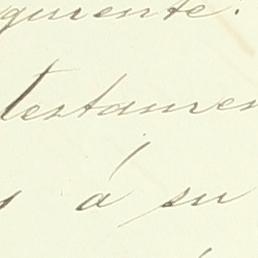 guiente:
testamen
s á su